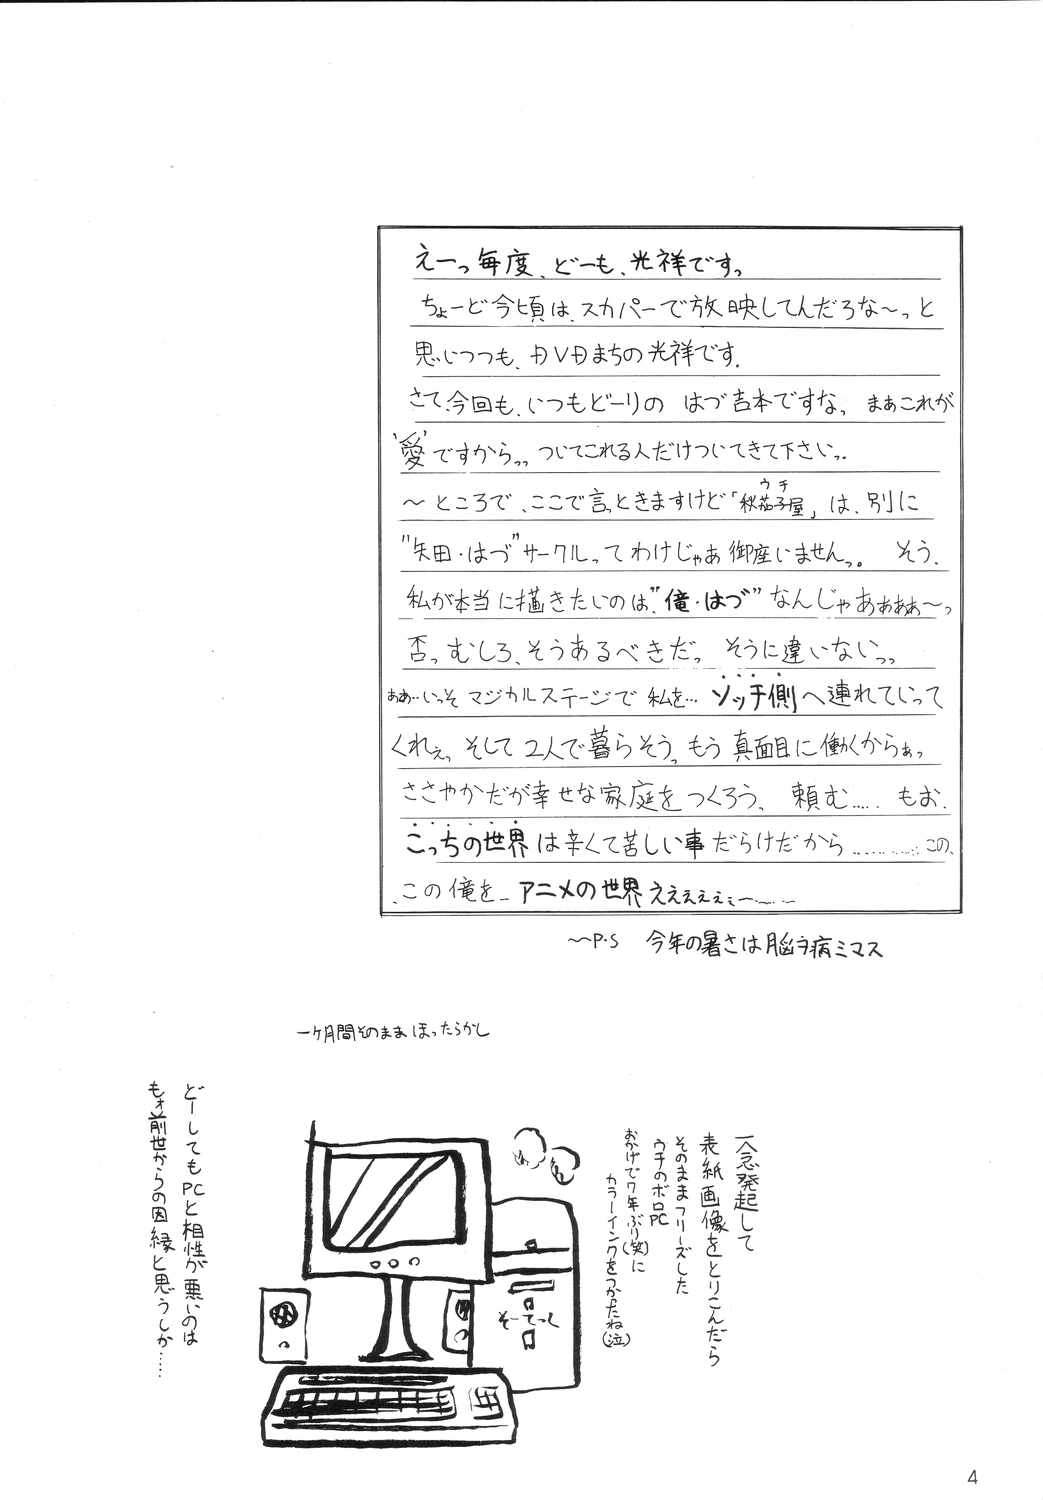 えーっ毎度、どーも、光祥ですっ
ちょーど今頃は、スカパーで放映してんだろな〜っと
思いつつも、DVDまちの光祥です。
さて、今回も、いつもどーりの はづ吉本ですなっ まぁこれが
“愛”ですからっっ ついてこれる人だけついてきて下さいっ。
〜ところで、ここで言っときますけど「秋茄子屋」は、別に
ウチ
“矢田・はづ”サークルってわけじゃあ御座いませんっ。 そう、
私が本当に描きたいのは、“俺・はづ”なんじゃあぁぁぁぁ〜っ
否っ むしろ、そうあるべきだっ そうに違いないっっ
ああ…いっそマジカルステージで 私を… ソッチ側へ連れていって
くれぇっ そして2人で暮らそうっ もう真面目に働くからぁっ
ささやかだが幸せな家庭をつくろう、 頼む…… もお、
こっちの世界は辛くて苦しい事だらけだから………… この、
この俺を_アニメの世界へえええぇぇ〜……〜
〜P・S 今年の暑さは脳ヲ病ミマス
一ヶ月間そのままほったらかし
一念発起して
表紙画像をとりこんだら
そのままフリーズした
ウチのボロPC
おかげで7年ぶり(笑)に
カラーインクをつかったね(泣)
そーてっく
どーしてもPCと相性が悪いのは
もオ前世からの因縁と思うしか……
4